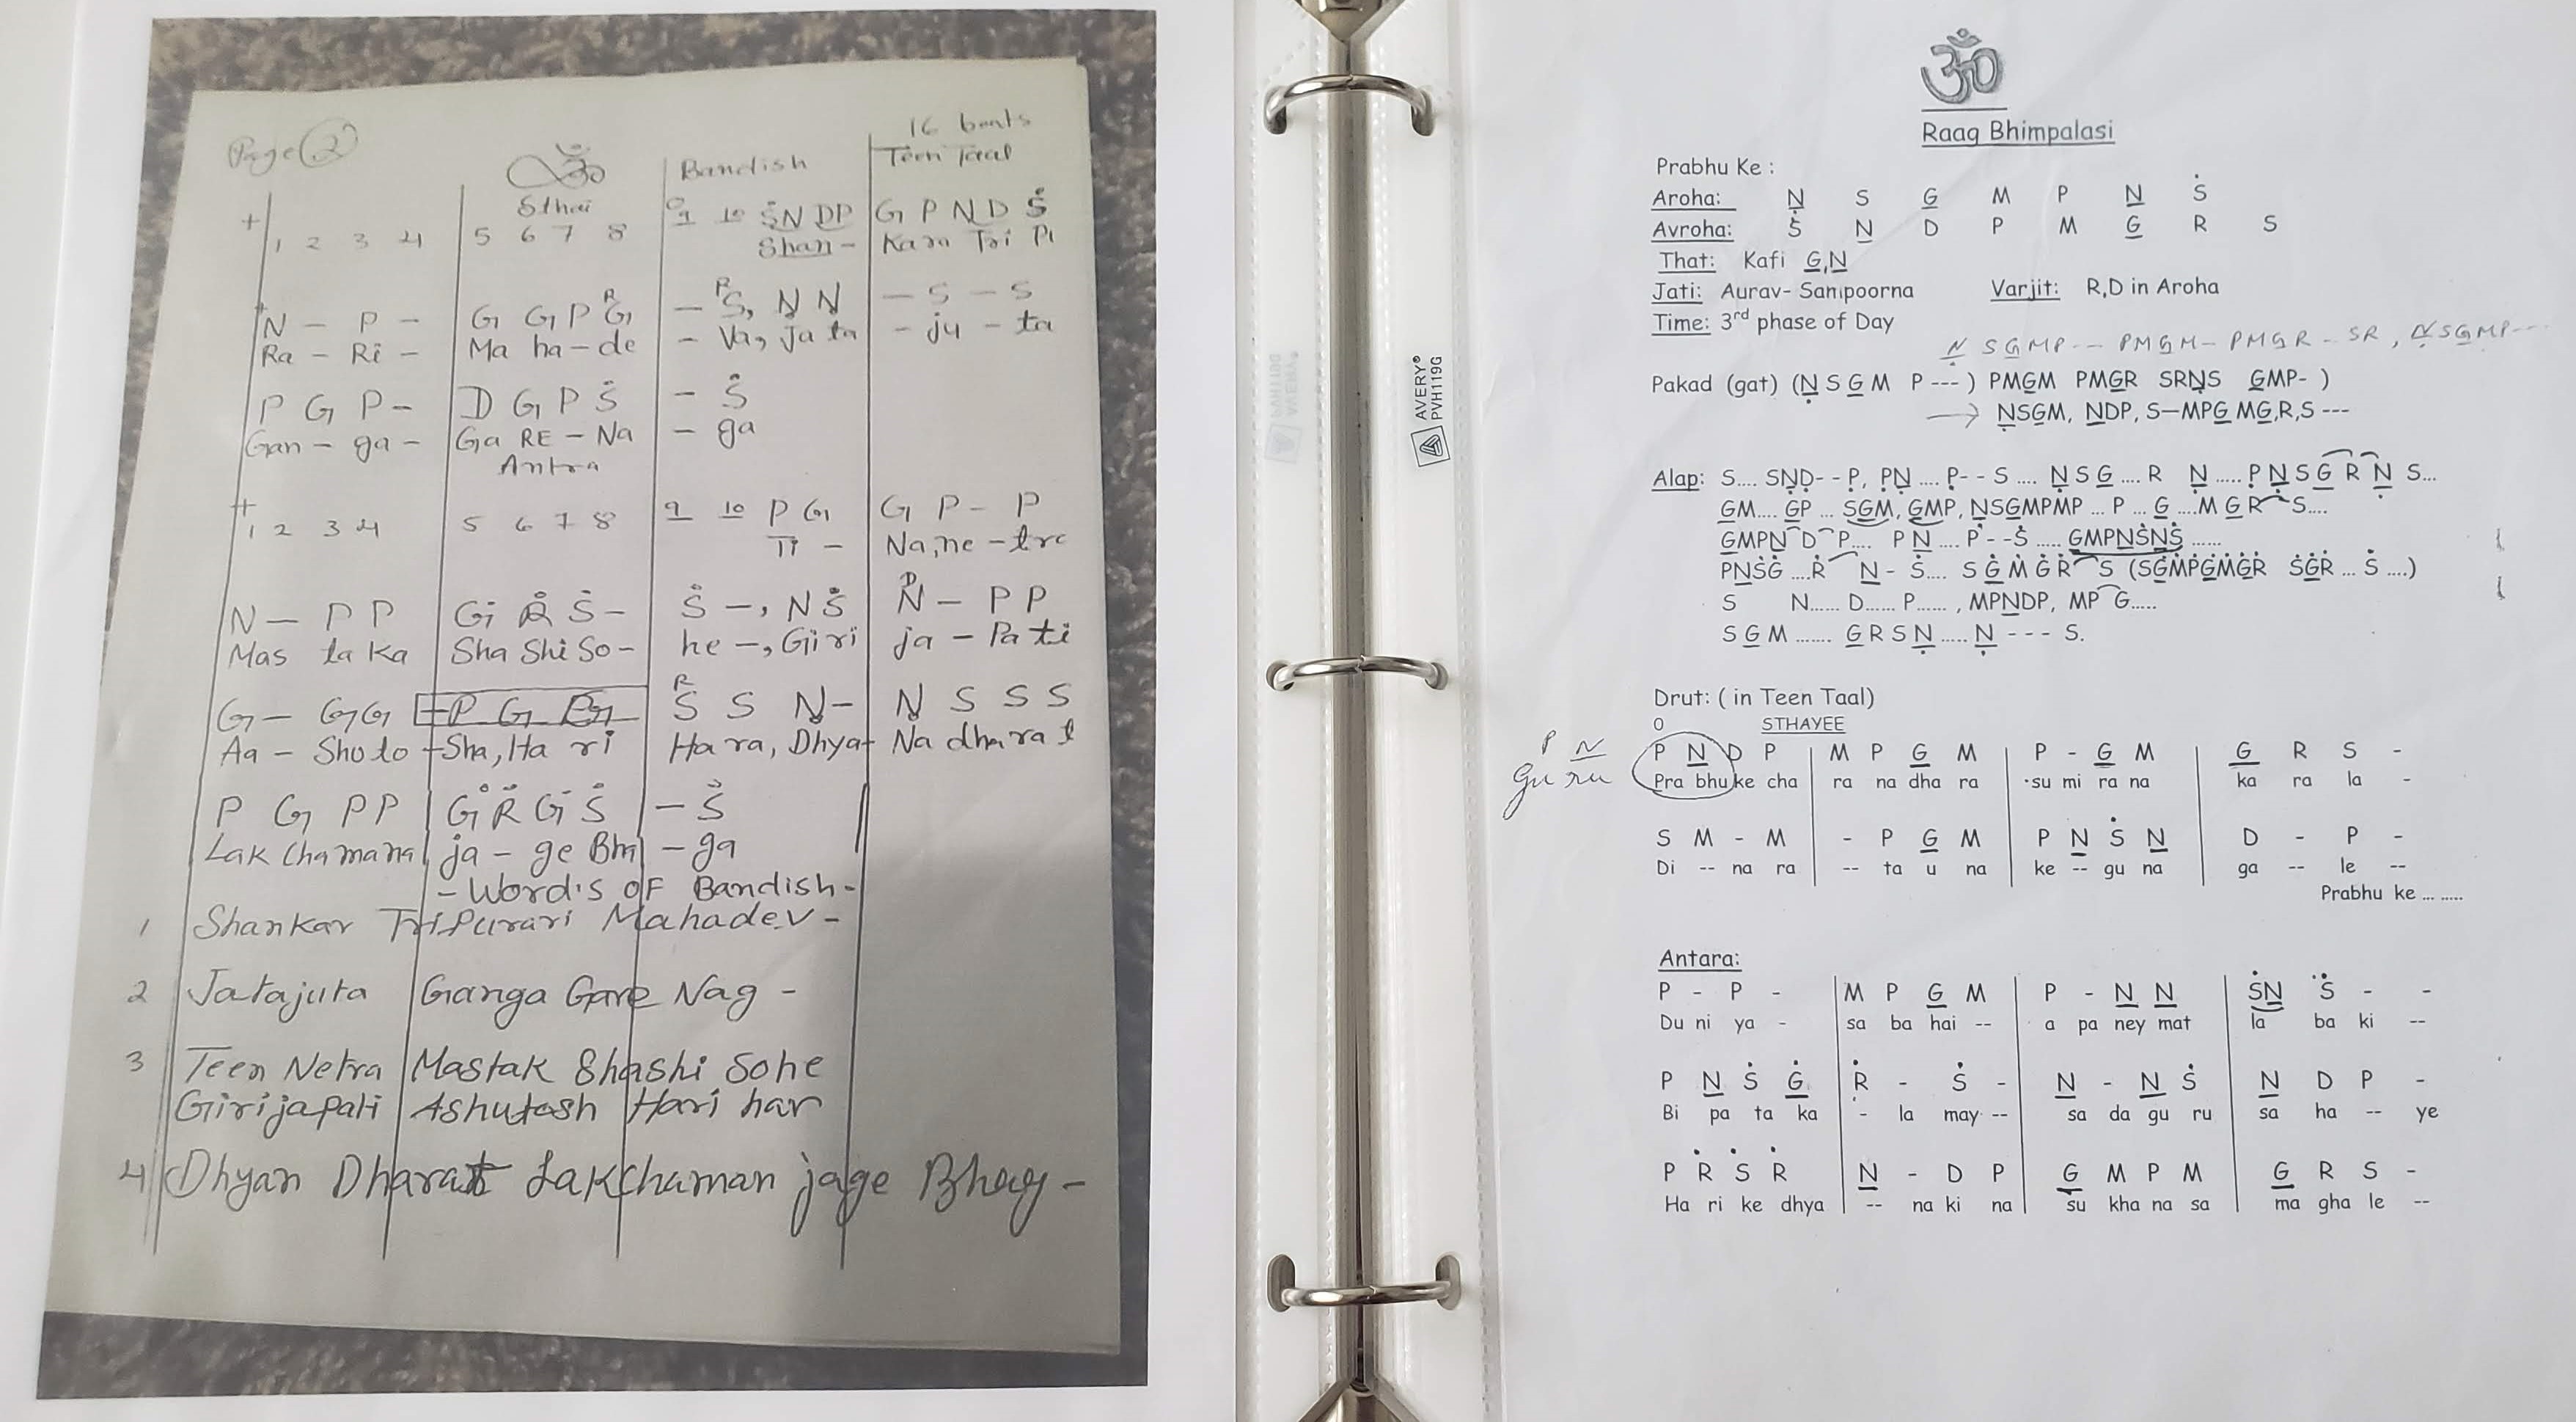 Page 2
16 beats
ॐ Bandish Teen Taal
Sthai
+ 1 2 3 4 5 6 7 8 0 9 10 ṠN DP G P N D Ṡ
Shan - Kara Tri Pu
+ N - P - G G P ᴿG - ᴿS, Ṇ Ṇ - S - S
Ra - Ri - Ma ha - de - Va, Ja ta - ju - ta
P G P - D G P Ṡ - Ṡ
Gan - ga - Ga RE - Na - ga
Antra
+ 1 2 3 4 5 6 7 8 9 10 P G G P - P
Ti - Na, ne - tra
N - P P Ġ Ṙ Ṡ - Ṡ -, N Ṡ ᴰN - P P
Mas ta Ka Sha Shi So - he -, Giri ja - Pa ti
G - G G - P G P G ᴿS S Ṇ - Ṇ S S S
Aa - Shu to - Sha, Ha ri Ha ra, Dhya - Na dha ra t
P G P P Ġ Ṙ Ġ Ṡ - Ṡ
Lak Cha mana ja - ge Bha - ga
- Word's OF Bandish -
1 Shankar Tripurari Mahadev -
2 Jatajuta Ganga Gare Nag -
3 Teen Netra Mastak Shashi Sohe
Girijapati Ashutosh Hari har
4 Dhyan Dharat Lakchaman jage Bhag -
AVERY®
PVH119G
ॐ
Raag Bhimpalasi
Prabhu Ke :
Aroha: Ṇ̲ S G̲ M P N̲ Ṡ
Avroha: Ṡ N̲ D P M G̲ R S
That: Kafi G̲,N̲
Jati: Aurav- Sampoorna Varjit: R,D in Aroha
Time: 3rd phase of Day
Ṇ̲ S G̲ M P -- P M G̲ M - P M G̲ R - S R , Ṇ̲ S G̲ M P ---
Pakad (gat) (Ṇ̲ S G̲ M P --- ) PMG̲M PMG̲R SRṆ̲S G̲MP- )
→ Ṇ̲SG̲M, N̲DP, S—MPG̲ MG̲,R,S ---
Alap: S.... SṆ̲Ḍ- -Ṗ, P̣Ṇ̲ .... P̣- - S .... Ṇ̲ S G̲ .... R Ṇ̲ ..... P̣ Ṇ̲ S G̲ R Ṇ̲ S...
G̲M.... G̲P ... SG̲M, G̲MP, Ṇ̲SG̲MPMP ... P ... G̲ ....M G̲ R S....
G̲MPN̲ D P.... P N̲ .... P - -Ṡ ..... G̲MPN̲ṠN̲Ṡ ......
PN̲ṠĠ̲ ....Ṙ N̲ - Ṡ.... S Ġ̲ Ṁ Ġ̲ Ṙ S (SĠ̲ṀṖĠ̲ṀĠ̲Ṙ ṠĠ̲Ṙ ... Ṡ ....)
S N...... D...... P...... , MPN̲DP, MP G.....
S G̲ M ....... G̲ R S Ṇ̲ ..... Ṇ̲ - - - S.
Drut: ( in Teen Taal)
0 STHAYEE
P N̲ P N̲ D P M P G̲ M P - G̲ M G̲ R S -
gu ru Pra bhu ke cha ra na dha ra su mi ra na ka ra la -
S M - M - P G̲ M P N̲ Ṡ N̲ D - P -
Di -- na ra -- ta u na ke -- gu na ga -- le --
Prabhu ke ... .....
Antara:
P - P - M P G̲ M P - N̲ N̲ ṠN̲ Ṡ - -
Du ni ya - sa ba hai -- a pa ney mat la ba ki --
P N̲ Ṡ Ġ̲ Ṙ - Ṡ - N̲ - N̲ Ṡ N̲ D P -
Bi pa ta ka - la may -- sa da gu ru sa ha -- ye
P Ṙ Ṡ Ṙ N̲ - D P G̲ M P M G̲ R S -
Ha ri ke dhya -- na ki na su kha na sa ma gha le --